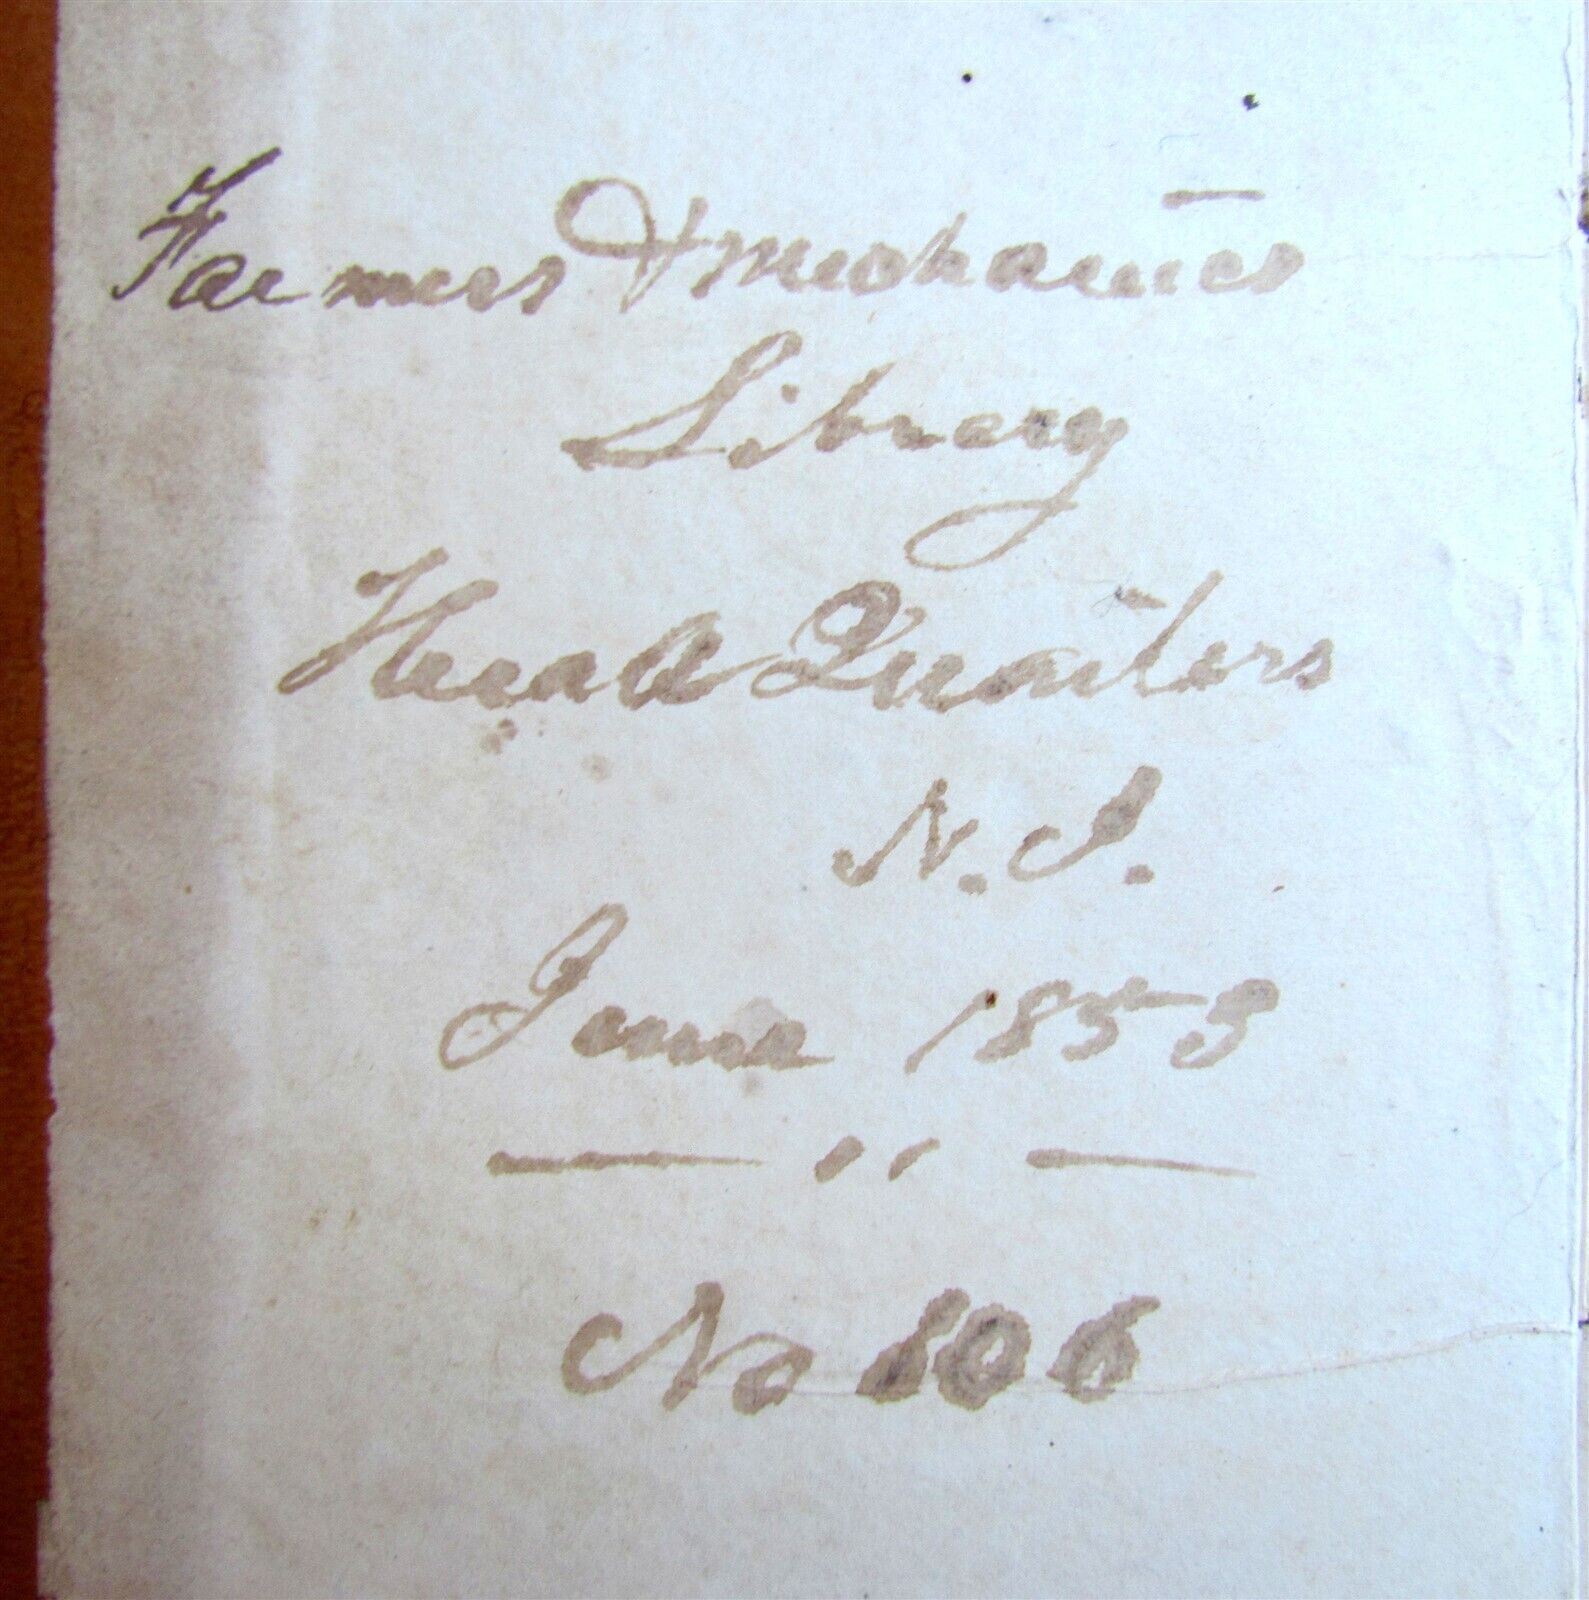 Farmers & mechanics
Library
Head Quarters
N. J.
June 1853
No 606